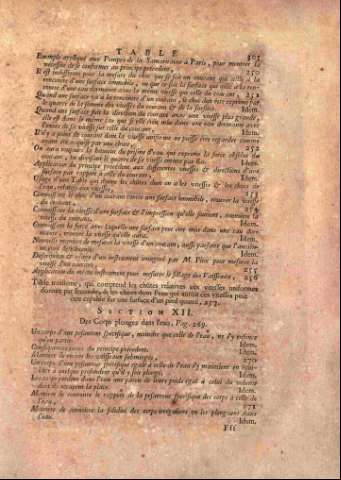 TABLE
Exemple appliqué aux Pompes de la Samaritaine à Paris, pour montrer la
nécessité de se conformer au principe précédent,
Il est indifférent pour la mesure du choc que ce soit un courant qui aille à la
rencontre d'une surface immobile, ou que ce soit la surface qui aille à la ren-
contre d'une eau dormante avec la même vitesse que celle du courant, 251
Quand une surface va à la rencontre d'un courant, le choc doit être exprimé par
le quarré de la somme des vitesses du courant & de la surface. Idem.
Quand une surface fuit la direction du courant avec une vitesse plus grande,
elle est dans le même cas que si elle étoit mûe dans une eau dormante avec
l'excès de sa vitesse sur celle du courant, Idem.
Il n'y a point de courant dont la vitesse uniforme ne puisse être regardée comme
ayant été acquise par une chûte, 252
On aura toujours la hauteur du prisme d'eau qui exprime la force absolue du
courant, en divisant le quarré de sa vitesse par 60. Idem.
Application du principe précédent aux différentes vitesses & directions d'une
surface par rapport à celle du courant, Idem.
Usage d'une Table qui donne les chûtes dues aux vitesses & les chocs de
l'eau, relatifs aux vitesses, Idem.
Connoissant le choc d'un courant contre une surface immobile, trouver la vitesse
du courant, Idem.
Connoissant la vitesse d'une surface & l'impression qu'elle soutient, connoître la
vitesse du courant, Idem.
Connoissant la force avec laquelle une surface peut être mûe dans une eau dor-
mante, trouver la vitesse qu'elle aura. Idem.
Nouvelle maniere de mesurer la vitesse d'un courant, aussi parfaite que l'ancien-
ne est défectueuse, Idem.
Description & usage d'un instrument imaginé par M. Pitot pour mesurer la
vitesse d'un courant,
Application du même instrument pour mesurer le sillage des Vaisseaux, 256
Table troisieme, qui comprend les chûtes relatives aux vitesses uniformes
données par secondes, & les chocs dont l'eau qui auroit ces vitesses peut
être capable sur une surface d'un pied quarré, 257.
SECTION XII.
Des Corps plongés dans l'eau, Pag. 269.
Un corps d'une pesanteur spécifique, moindre que celle de l'eau, ne s'y enfonce
qu'en partie. Idem.
Conséquences tirées du principe précédent. Idem.
Maniere de retirer des vaisseaux submergés, 270
Un corps d'une pesanteur spécifique égale à celle de l'eau s'y maintient en équi-
libre à quelque profondeur qu'il y soit plongé. Idem.
Un corps perd dans l'eau une partie de son poids égal à celui du volume
dont il occupera la place. Idem.
Maniere de connoître le rapport de la pesanteur spécifique des corps à celle de
l'eau, 271
Maniere de connoître la solidité des corps irréguliers en les plongeant dans
l'eau. Idem.